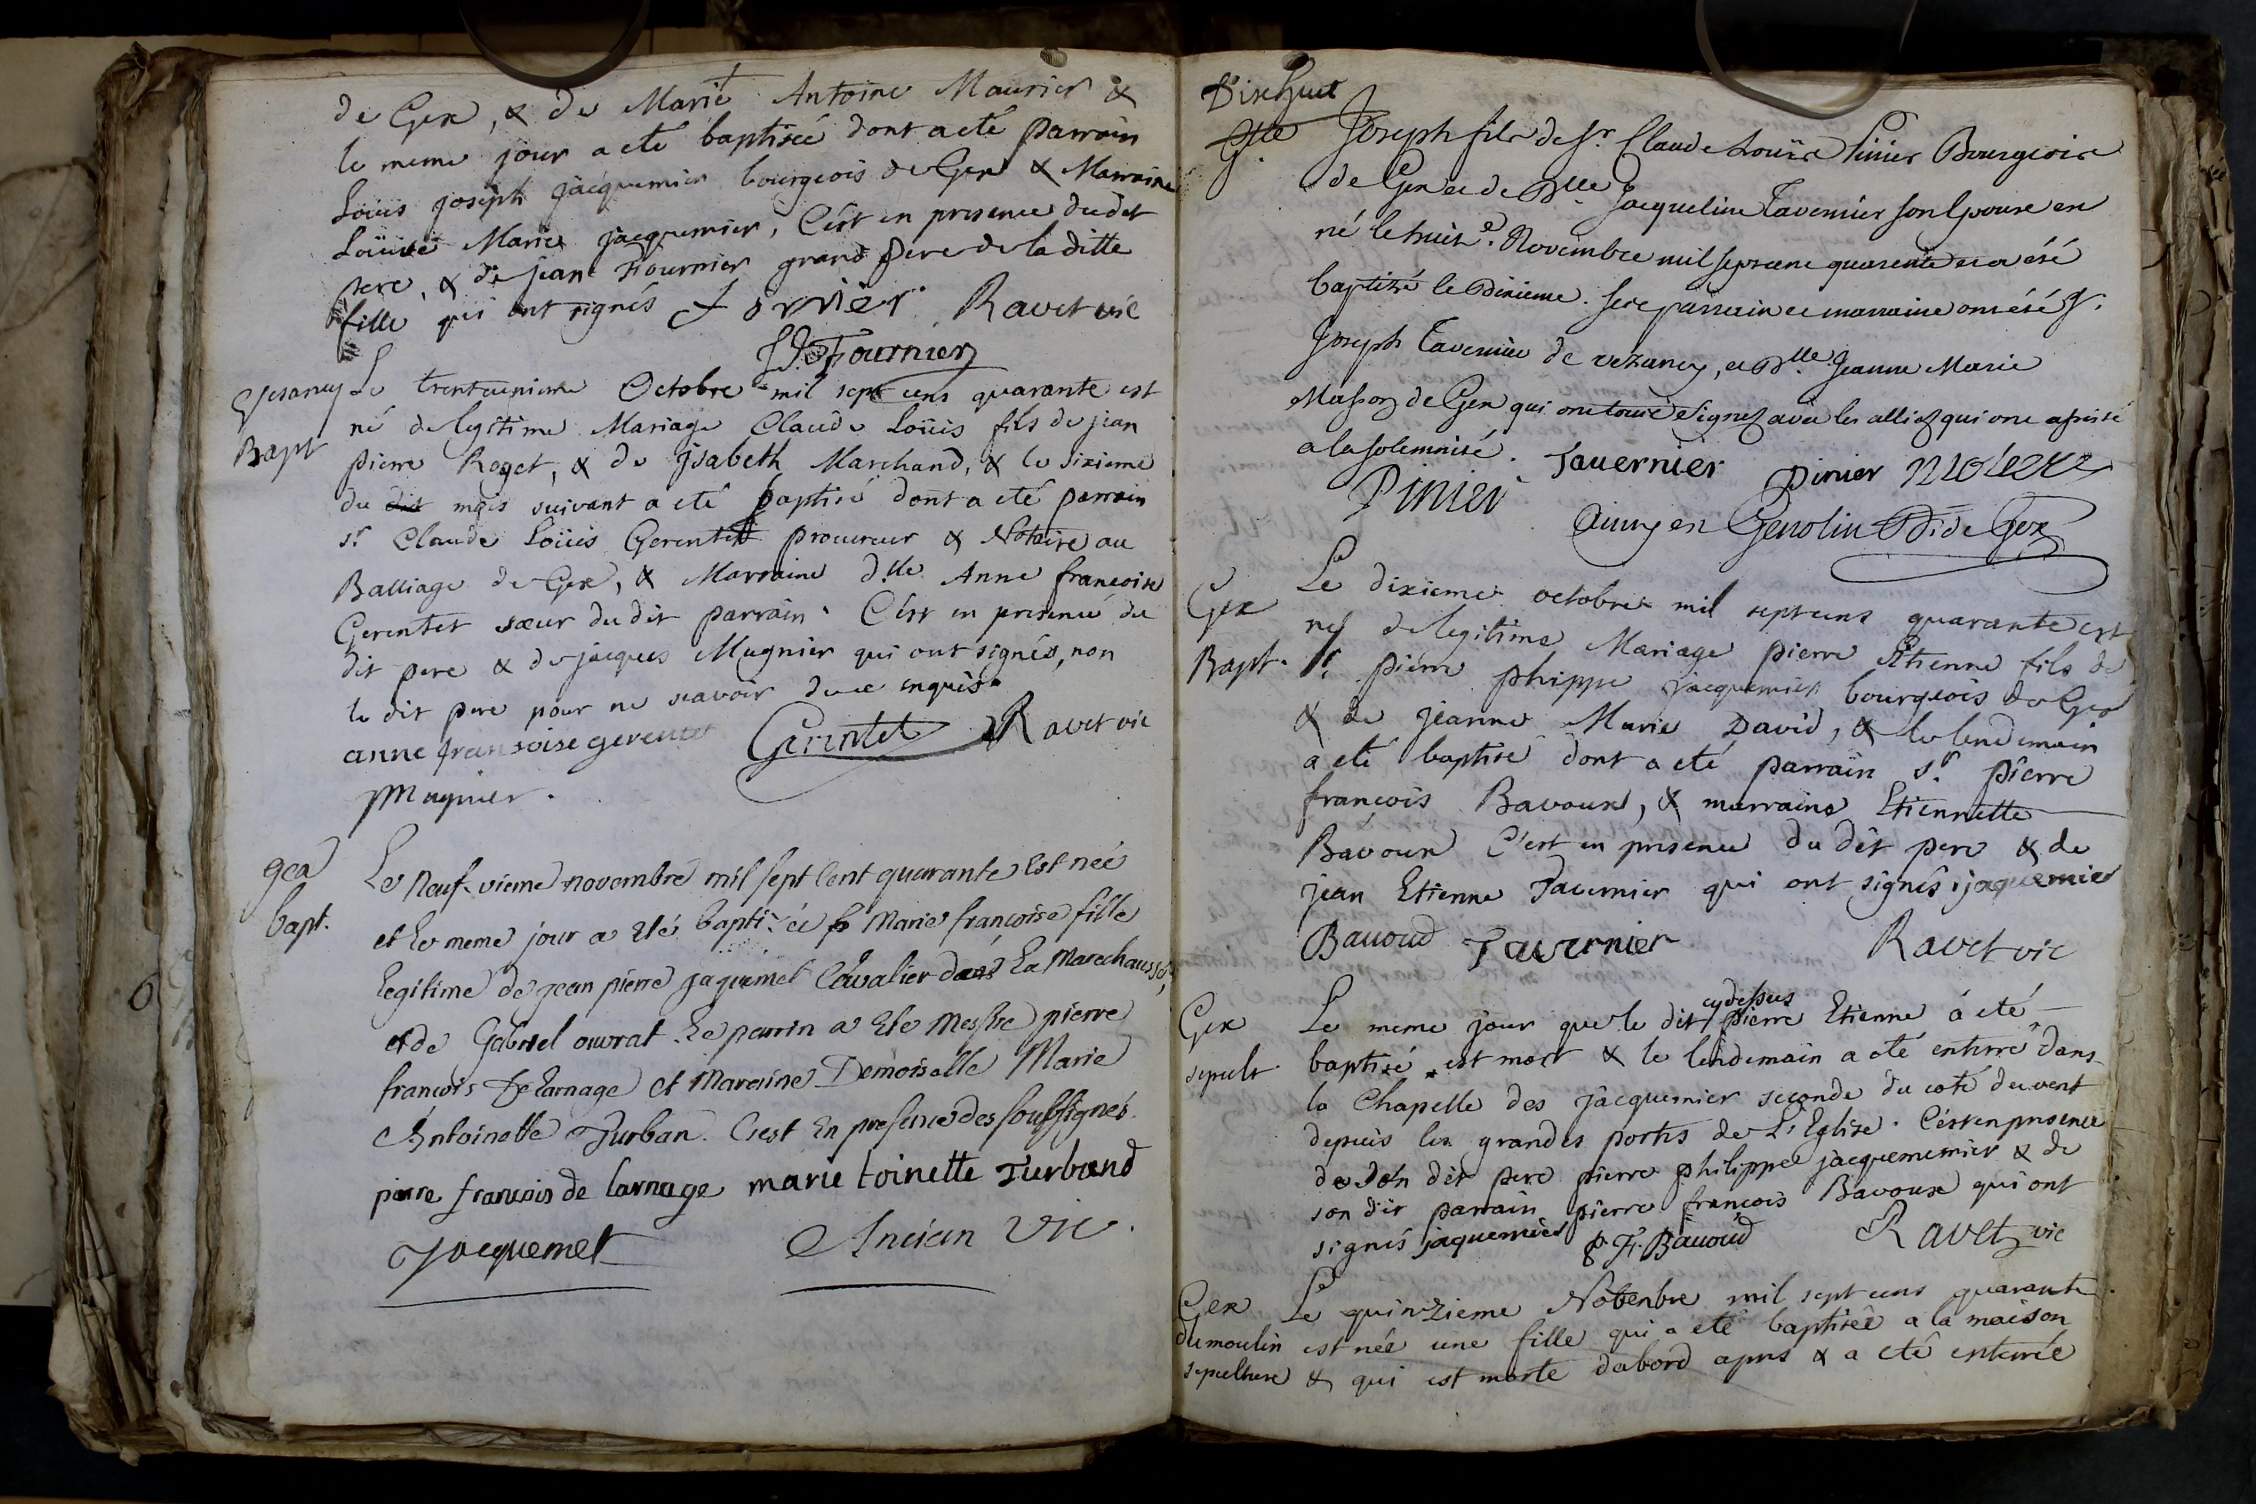 de Gex, & de Marie Antoine Maurier &
le meme jour a eté baptiseé dont a eté parrain
Loüis joseph jacquemier bourgeois de Gex & Marraine
Loüise Marie jacquemier, C'est en presence dudit
pere, & de jean Fournier grand pere de la ditte
fille qui ont signés Fornier. Ravet vic
J. Fournier
Vesancy Le trenteunieme Octobre mil sept cens quarante est
né de legitime Mariage Claude Loüis fils de jean
Bapt pierre Roget, & de jsabeth Marchand, & le sixieme
du dit mois suivant a eté baptisé dont a eté parrain
sr. Claude Loüis Gerentet procureur & Notaire au
Balliage de Gex, & Marraine d.lle Anne francoise
Gerentet sœur du dit parrain. C'ést en presence du
dit pere & de jacques Mugnier qui ont signés, non
le dit pere pour ne scavoir de ce enquis.
anne fransoise gerentet Gerentet Ravet vic
Mugnier.
gex Le neuf vieme novembre mil sept cent quarante est née
bapt. et le meme jour a eté baptisée Marie françoise fille
legitime de jean pierre jaquemet Cavalier dans La Marechaussée,
et de Gabriel ouvrat. Le parrin a ete Messire pierre
francois de Larnage et Maraine Demoiselle Marie
Antoinette Turban. C'est en presence des soussignés.
pierre francois de larnage marie toinette Turband
Jacquemet Ancian vic.
Dixhuit
Gex Joseph fils de Sr. Claude Louïse Pinier Bourgeois
de Gex et de Dlle. Jacqueline Tavernier son Epouse est
né le huite. Novembre mil sept cent quarente et a été
baptisé le Dixieme. Ses parrain et marraine ont été Sr.
Joseph Tavernier de vezancy, et Dlle. Jeanne Marie
Masson de Gex qui ont tous signez avec les alliez qui ont assisté
a la solemnité. Tauernier Pinier
Pinier Genolin de Gex
Gex Le dixieme octobre mil sept cens quarante est
né de legitime Mariage pierre Etienne fils de
Bapt. Sr. pierre phippe jacquemier bourgeois de Gex
& de jeanne Marie David, & le lendemain
a eté baptisé dont a eté parrain sr. pierre
françois Bavoux, & marraine Etiennette
Bavoux C'est en presence du dit pere & de
jean Etienne Tavernier qui ont signés jaquemier
Bauoud Tavernier Ravet vic
Gex Le meme jour que le dit cydessus pierre Etienne á eté
sepult. baptisé est mort & le lendemain a eté enterré dans
la Chapelle des jâcquemier seconde du coté du vent
depuis les grandes portes de L'Eglise. C'ést en presence
de son dit pere pierre philippe jacquememier & de
son dit parrain pierre francois Bavoux qui ont
signés jaquemier p. F. Bauoud Ravet vic
Gex Le quinzieme Nobenbre mil sept cens quarante
du moulin est née une fille qui a eté baptisée a la maison
sepulture & qui est morte dabord apres & a eté enterrée